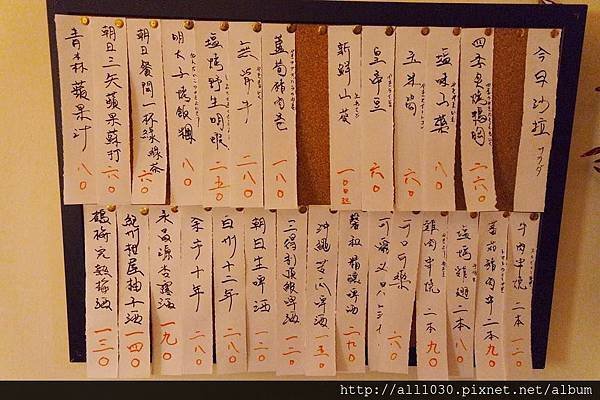 今日沙拉 サラダ
四季臭燒鴨胸 二六〇
塩味山藥 八〇
玉米筍 六〇
皇帝豆 六〇
新鮮山葵 一〇〇
蘆筍豬肉卷 一八〇
無骨牛 二八〇
塩烤野生明蝦 二五〇
明太子烤飯糰 八〇
朝日餐間一杯綠綠茶 六〇
朝日三矢蘋果蘇打 六〇
青森蘋果汁 八〇
牛肉串燒 二本 一二〇
豬肉牛 二本 九〇
塩烤雞翅 二本 八〇
雞肉串燒 二本 九〇
可口可樂 六〇
可爾
精釀啤酒 二九〇
沖繩苦瓜啤酒 一五〇
三得利頂級啤酒 一二〇
朝日生啤酒 一二〇
白州十二年 二八〇
余市十年 二八〇
永昌源杏露酒 一九〇
紀州柚子酒 一四〇
鶴梅完熟梅酒 一三〇
http://alll030.pixnet.net/album